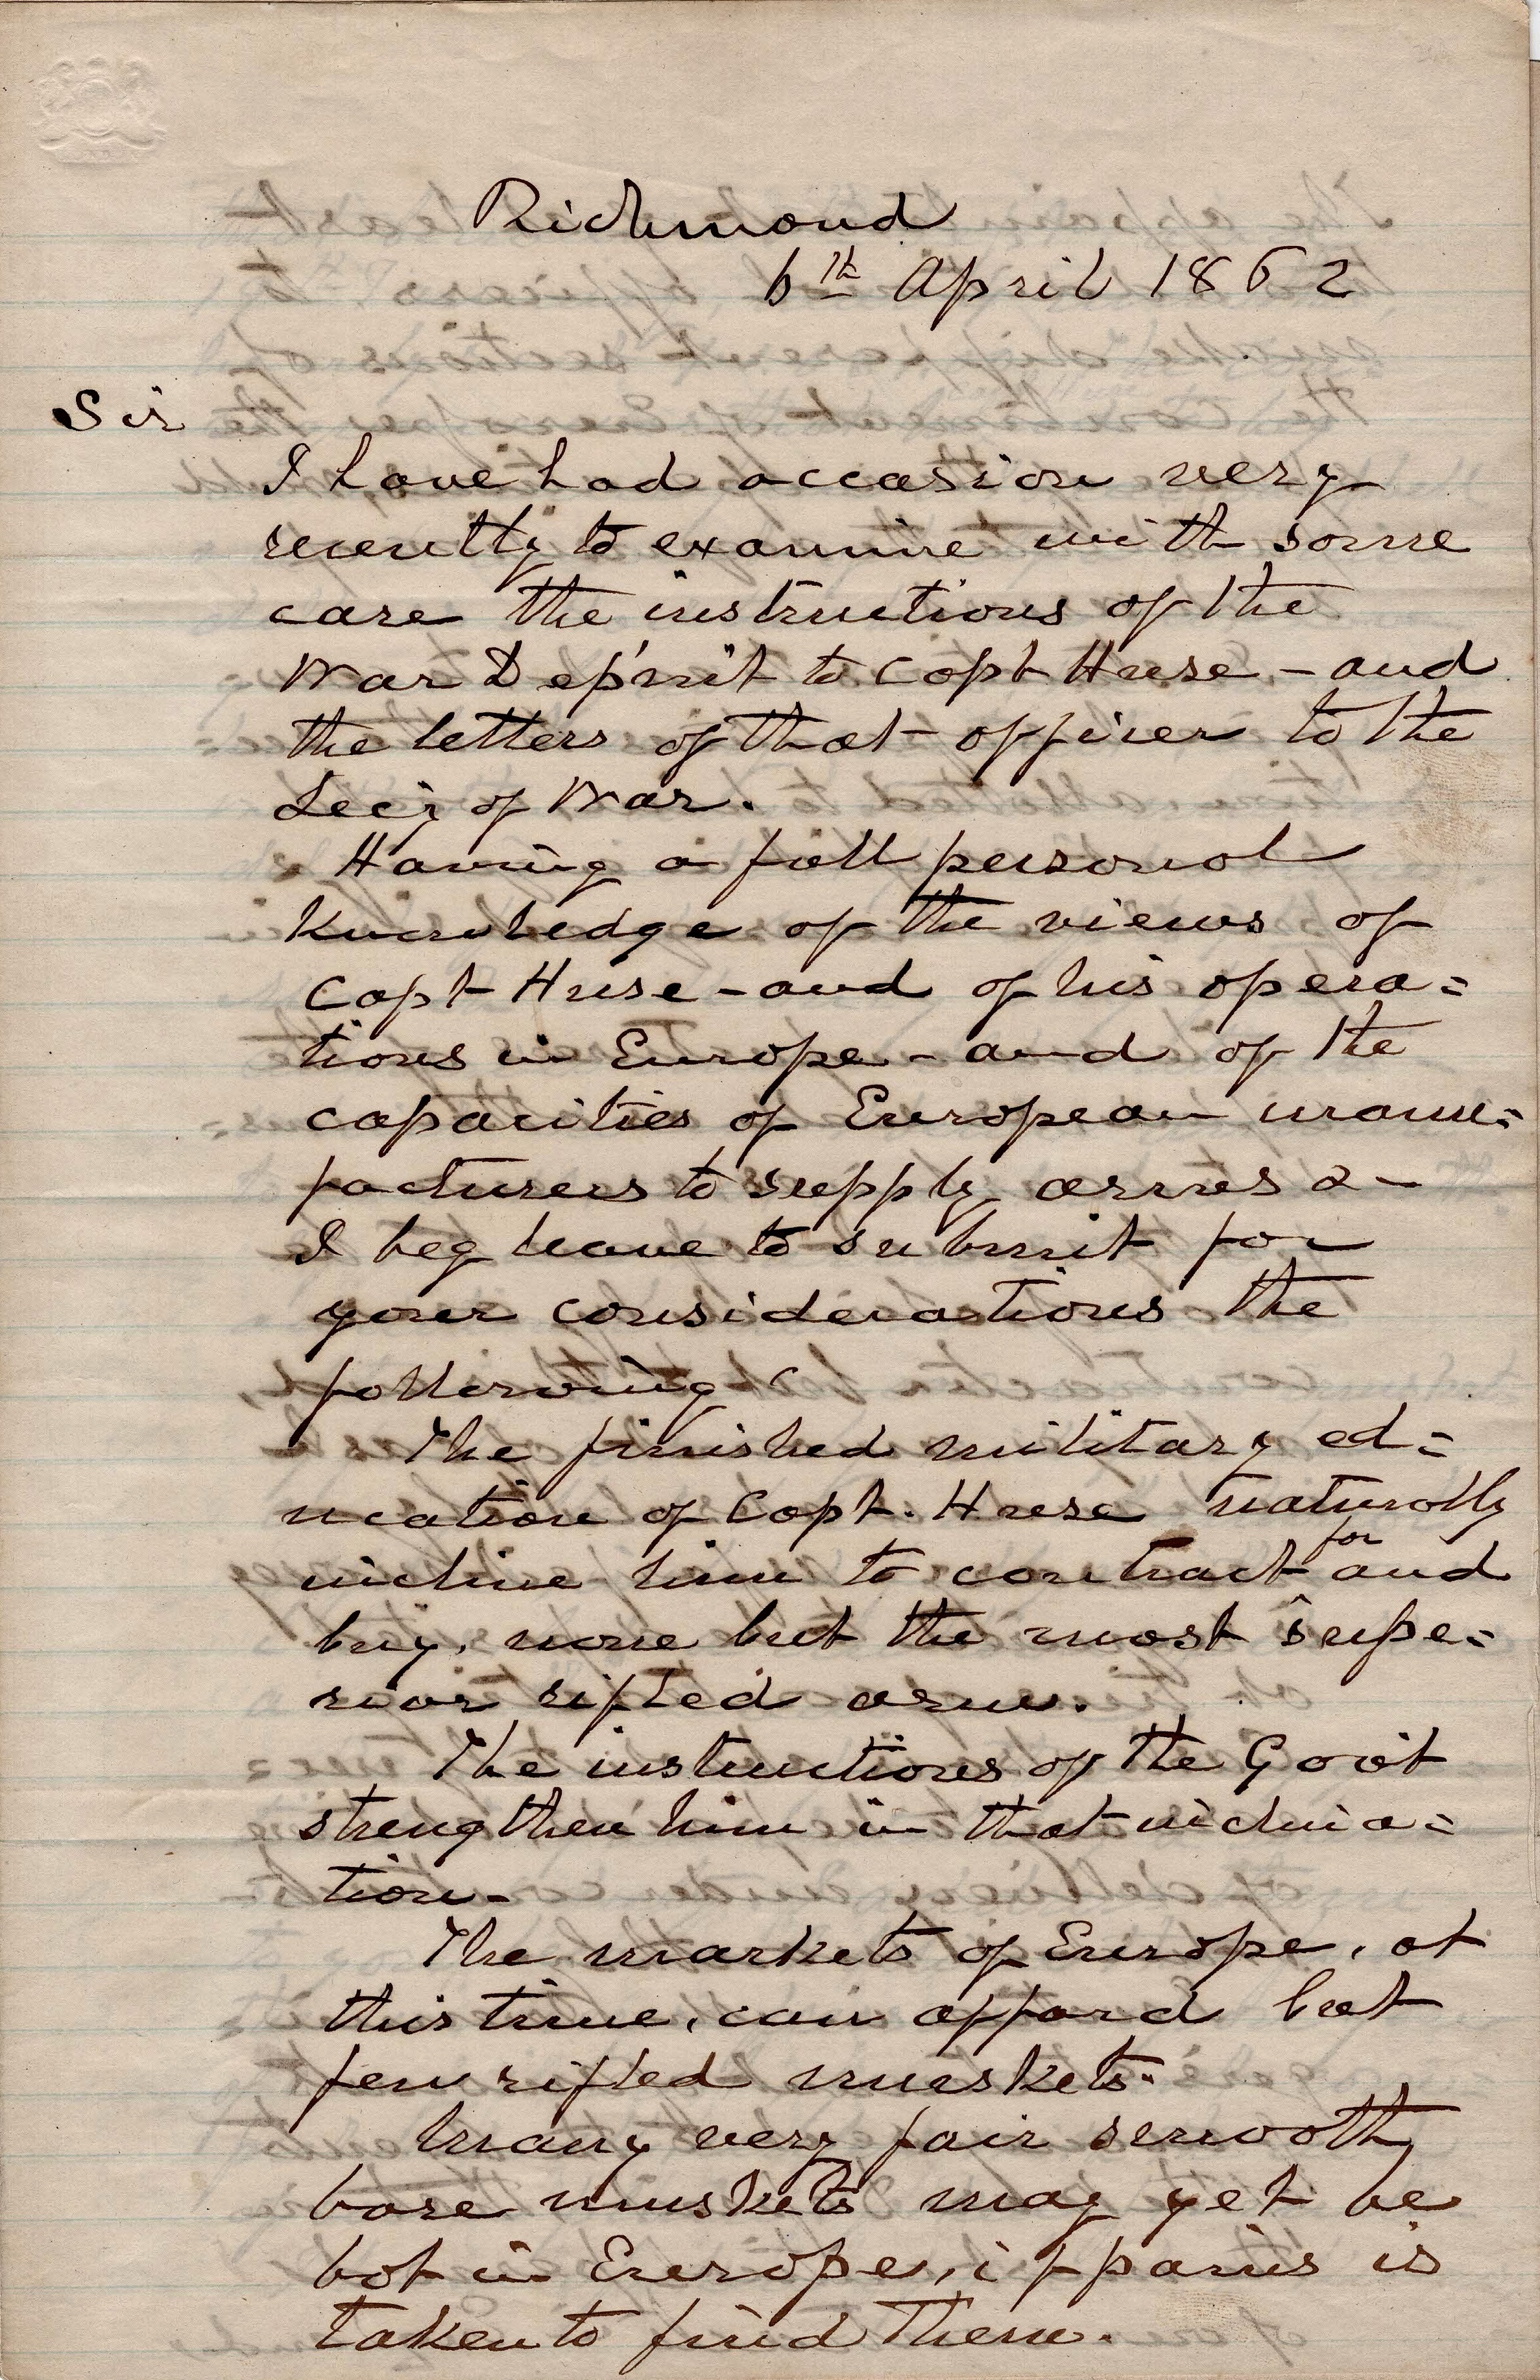 Richmond
6th April 1862
Sir
I have had occasion very
recently to examine with some
care the instructions of the
War Dep'm't to Capt Huse - and
the letters of that officer to the
Sec'y of War.
Having a full personal
knowledge of the views of
Capt Huse - and of his opera=
tions in Europe - and of the
capacities of European manu=
facturers to supply arms &-
I beg leave to submit for
your considerations the
following
The finished military ed=
ucation of Capt. Huse naturally
incline him to contract for and
buy, none but the most supe=
rior rifled arms.
The instructions of the Gov't
strengthen him in that inclina=
tion-
The markets of Europe, at
this time, can afford but
few rifled muskets.
Many very fair smooth
bore muskets may yet be
bot in Europe, if pains is
taken to find them.